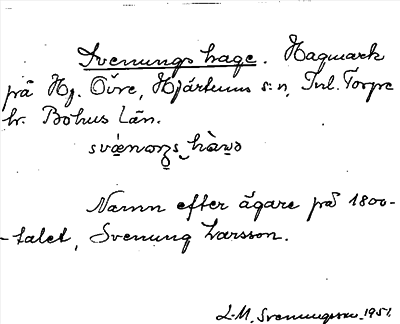 Svenungs hage. Hagmark
på Hj. Övre, Hjärtums s:n, Inl. Torpe
hr. Bohus Län.
hàɯə
Namn efter ägare på 1800-
-talet, Svenung Larsson.
L-M. Svenungsson 1951.